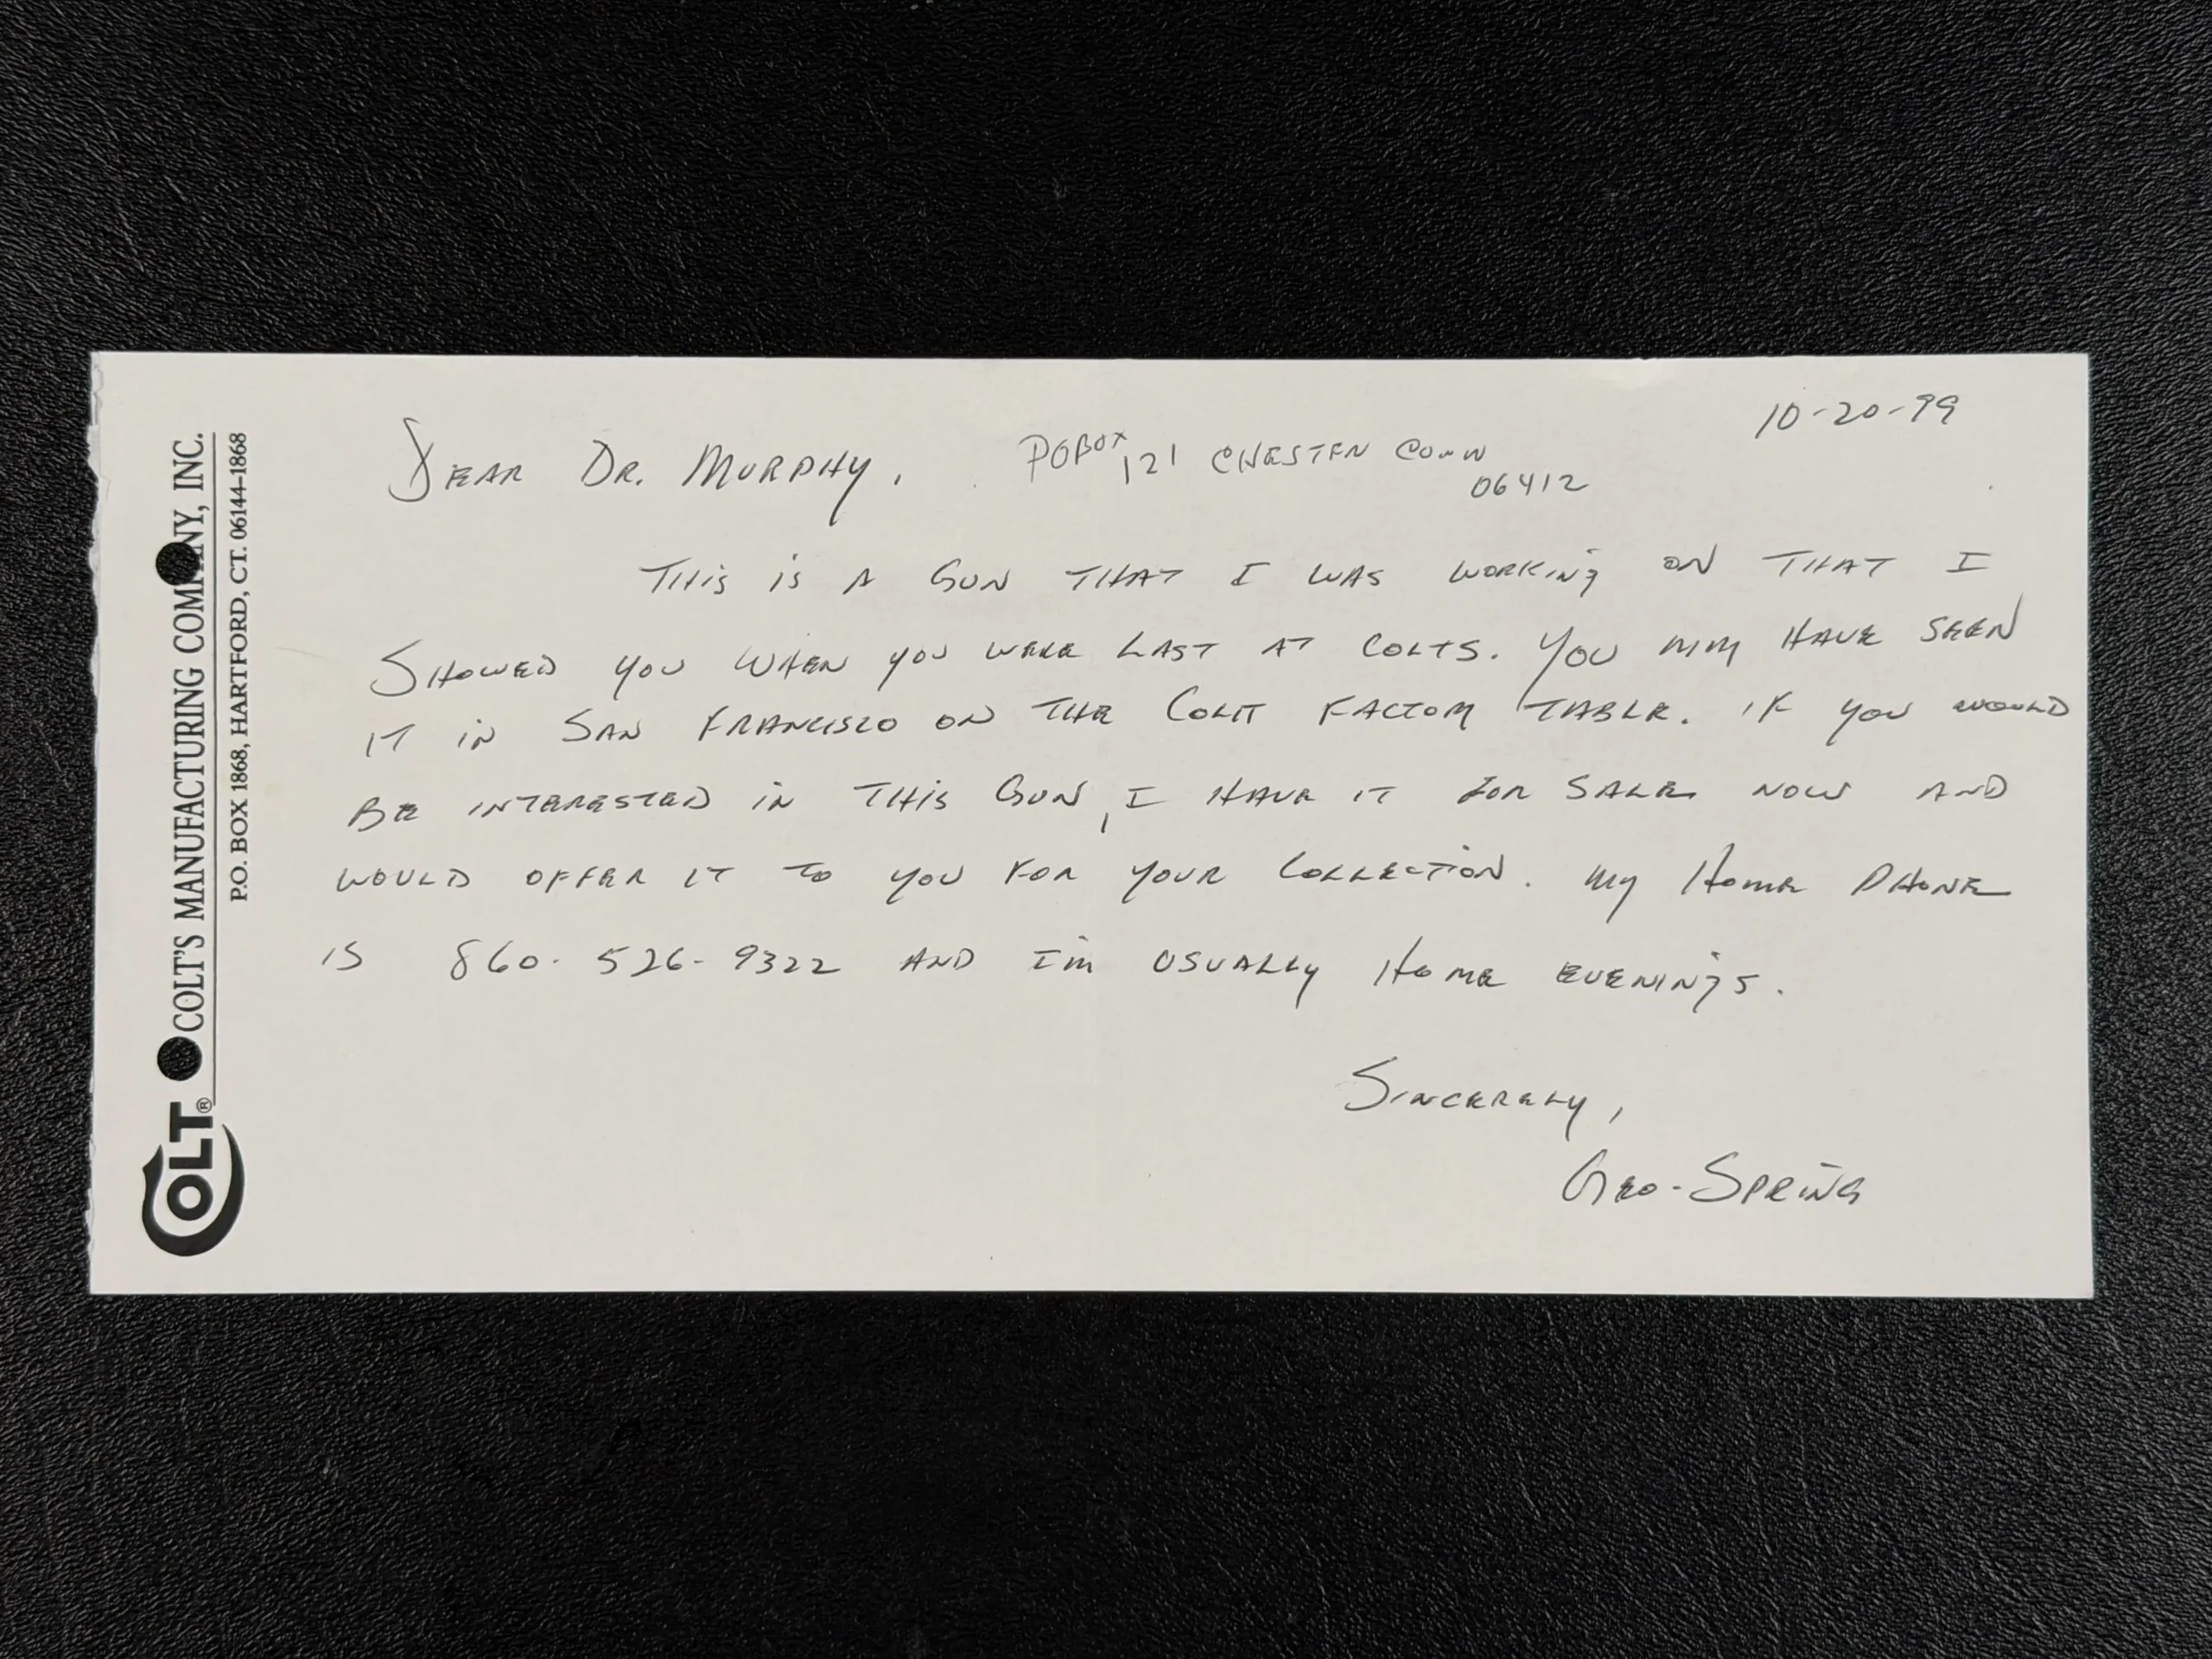 COLT'S MANUFACTURING COMPANY, INC.
P.O. BOX 1868, HARTFORD, CT. 06144-1868
COLT®
10-20-99
DEAR DR. MURPHY,
POBOX 121 CHESTER CONN
06412
THIS IS A GUN THAT I WAS WORKING ON THAT I
SHOWED YOU WHEN YOU WERE LAST AT COLTS. YOU MAY HAVE SEEN
IT IN SAN FRANCISCO ON THE COLT FACTORY TABLE. IF YOU WOULD
BE INTERESTED IN THIS GUN, I HAVE IT FOR SALE NOW AND
WOULD OFFER IT TO YOU FOR YOUR COLLECTION. MY HOME PHONE
IS 860-526-9322 AND I'M USUALLY HOME EVENINGS.
SINCERELY,
GEO-SPRING